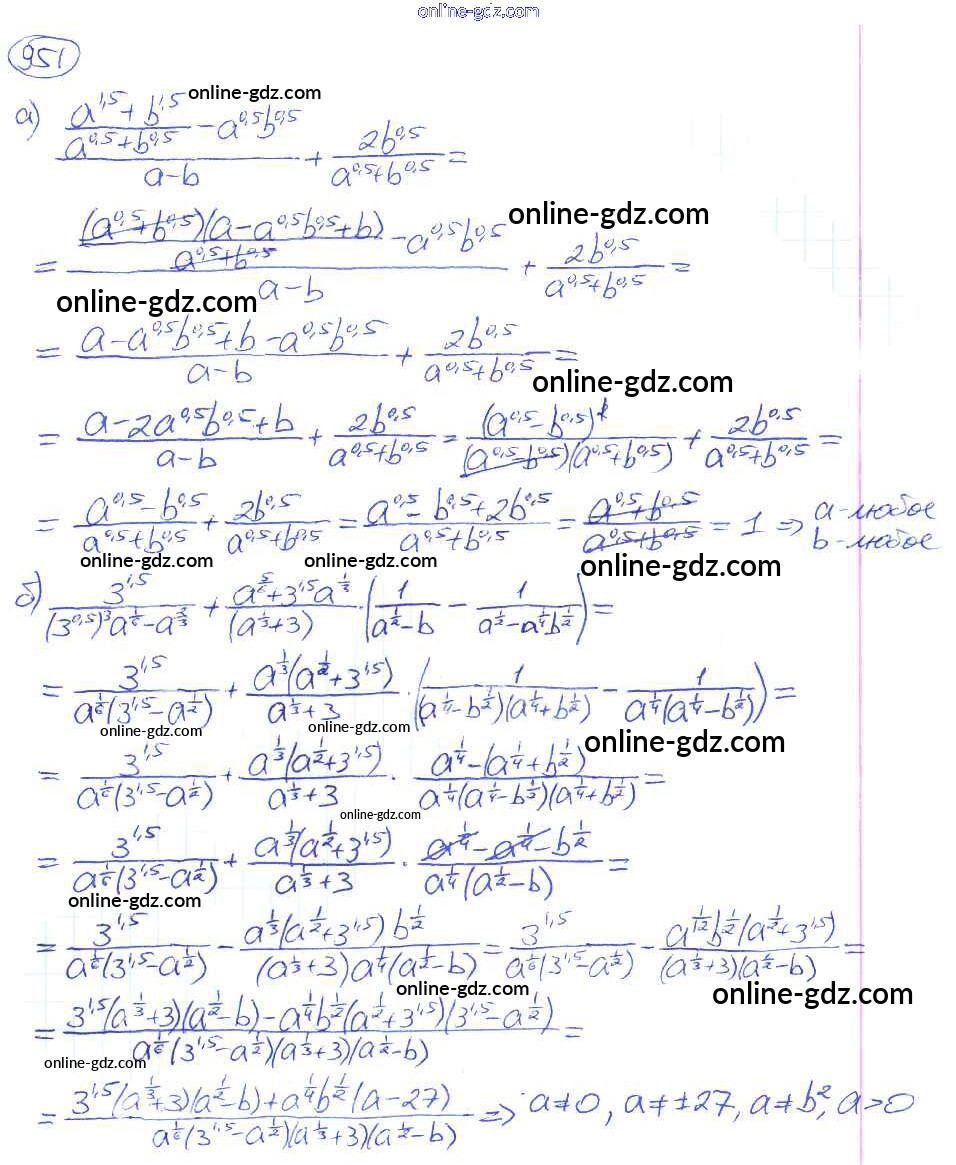 online-gdz.com
951
а) ((a^{1,5} + b^{1,5})/(a^{0,5} + b^{0,5}) - a^{0,5}b^{0,5})/(a - b) + 2b^{0,5}/(a^{0,5} + b^{0,5}) =
online-gdz.com
online-gdz.com
= ((a^{0,5} + b^{0,5})(a - a^{0,5}b^{0,5} + b)/(a^{0,5} + b^{0,5}) - a^{0,5}b^{0,5})/(a - b) + 2b^{0,5}/(a^{0,5} + b^{0,5}) =
online-gdz.com
online-gdz.com
= (a - a^{0,5}b^{0,5} + b - a^{0,5}b^{0,5})/(a - b) + 2b^{0,5}/(a^{0,5} + b^{0,5}) =
online-gdz.com
= (a - 2a^{0,5}b^{0,5} + b)/(a - b) + 2b^{0,5}/(a^{0,5} + b^{0,5}) = (a^{0,5} - b^{0,5})^{2}/((a^{0,5} - b^{0,5})(a^{0,5} + b^{0,5})) + 2b^{0,5}/(a^{0,5} + b^{0,5}) =
online-gdz.com
= (a^{0,5} - b^{0,5})/(a^{0,5} + b^{0,5}) + 2b^{0,5}/(a^{0,5} + b^{0,5}) = (a^{0,5} - b^{0,5} + 2b^{0,5})/(a^{0,5} + b^{0,5}) = (a^{0,5} + b^{0,5})/(a^{0,5} + b^{0,5}) = 1 ⇒ a - любое
b - любое
online-gdz.com
online-gdz.com
online-gdz.com
б) 3^{1,5}/((3^{0,5})^{3}a^{1/6} - a^{2/3}) + (a^{5/6} + 3^{1,5}a^{1/3})/(a^{1/3} + 3) · (1/(a^{1/2} - b) - 1/(a^{1/2} - a^{1/4}b^{1/2})) =
= 3^{1,5}/(a^{1/6}(3^{1,5} - a^{1/2})) + a^{1/3}(a^{1/2} + 3^{1,5})/(a^{1/3} + 3) · (1/((a^{1/4} - b^{1/2})(a^{1/4} + b^{1/2})) - 1/(a^{1/4}(a^{1/4} - b^{1/2}))) =
online-gdz.com
online-gdz.com
online-gdz.com
= 3^{1,5}/(a^{1/6}(3^{1,5} - a^{1/2})) + a^{1/3}(a^{1/2} + 3^{1,5})/(a^{1/3} + 3) · (a^{1/4} - (a^{1/4} + b^{1/2}))/(a^{1/4}(a^{1/4} - b^{1/2})(a^{1/4} + b^{1/2})) =
online-gdz.com
= 3^{1,5}/(a^{1/6}(3^{1,5} - a^{1/2})) + a^{1/3}(a^{1/2} + 3^{1,5})/(a^{1/3} + 3) · (a^{1/4} - a^{1/4} - b^{1/2})/(a^{1/4}(a^{1/2} - b)) =
online-gdz.com
= 3^{1,5}/(a^{1/6}(3^{1,5} - a^{1/2})) - a^{1/3}(a^{1/2} + 3^{1,5})b^{1/2}/((a^{1/3} + 3)a^{1/4}(a^{1/2} - b)) = 3^{1,5}/(a^{1/6}(3^{1,5} - a^{1/2})) - a^{1/12}b^{1/2}(a^{1/2} + 3^{1,5})/((a^{1/3} + 3)(a^{1/2} - b)) =
online-gdz.com
online-gdz.com
= (3^{1,5}(a^{1/3} + 3)(a^{1/2} - b) - a^{1/4}b^{1/2}(a^{1/2} + 3^{1,5})(3^{1,5} - a^{1/2}))/(a^{1/6}(3^{1,5} - a^{1/2})(a^{1/3} + 3)(a^{1/2} - b)) =
online-gdz.com
= (3^{1,5}(a^{1/3} + 3)(a^{1/2} - b) + a^{1/4}b^{1/2}(a - 27))/(a^{1/6}(3^{1,5} - a^{1/2})(a^{1/3} + 3)(a^{1/2} - b)) ⇒ a ≠ 0, a ≠ ±27, a ≠ b^{2}, a > 0